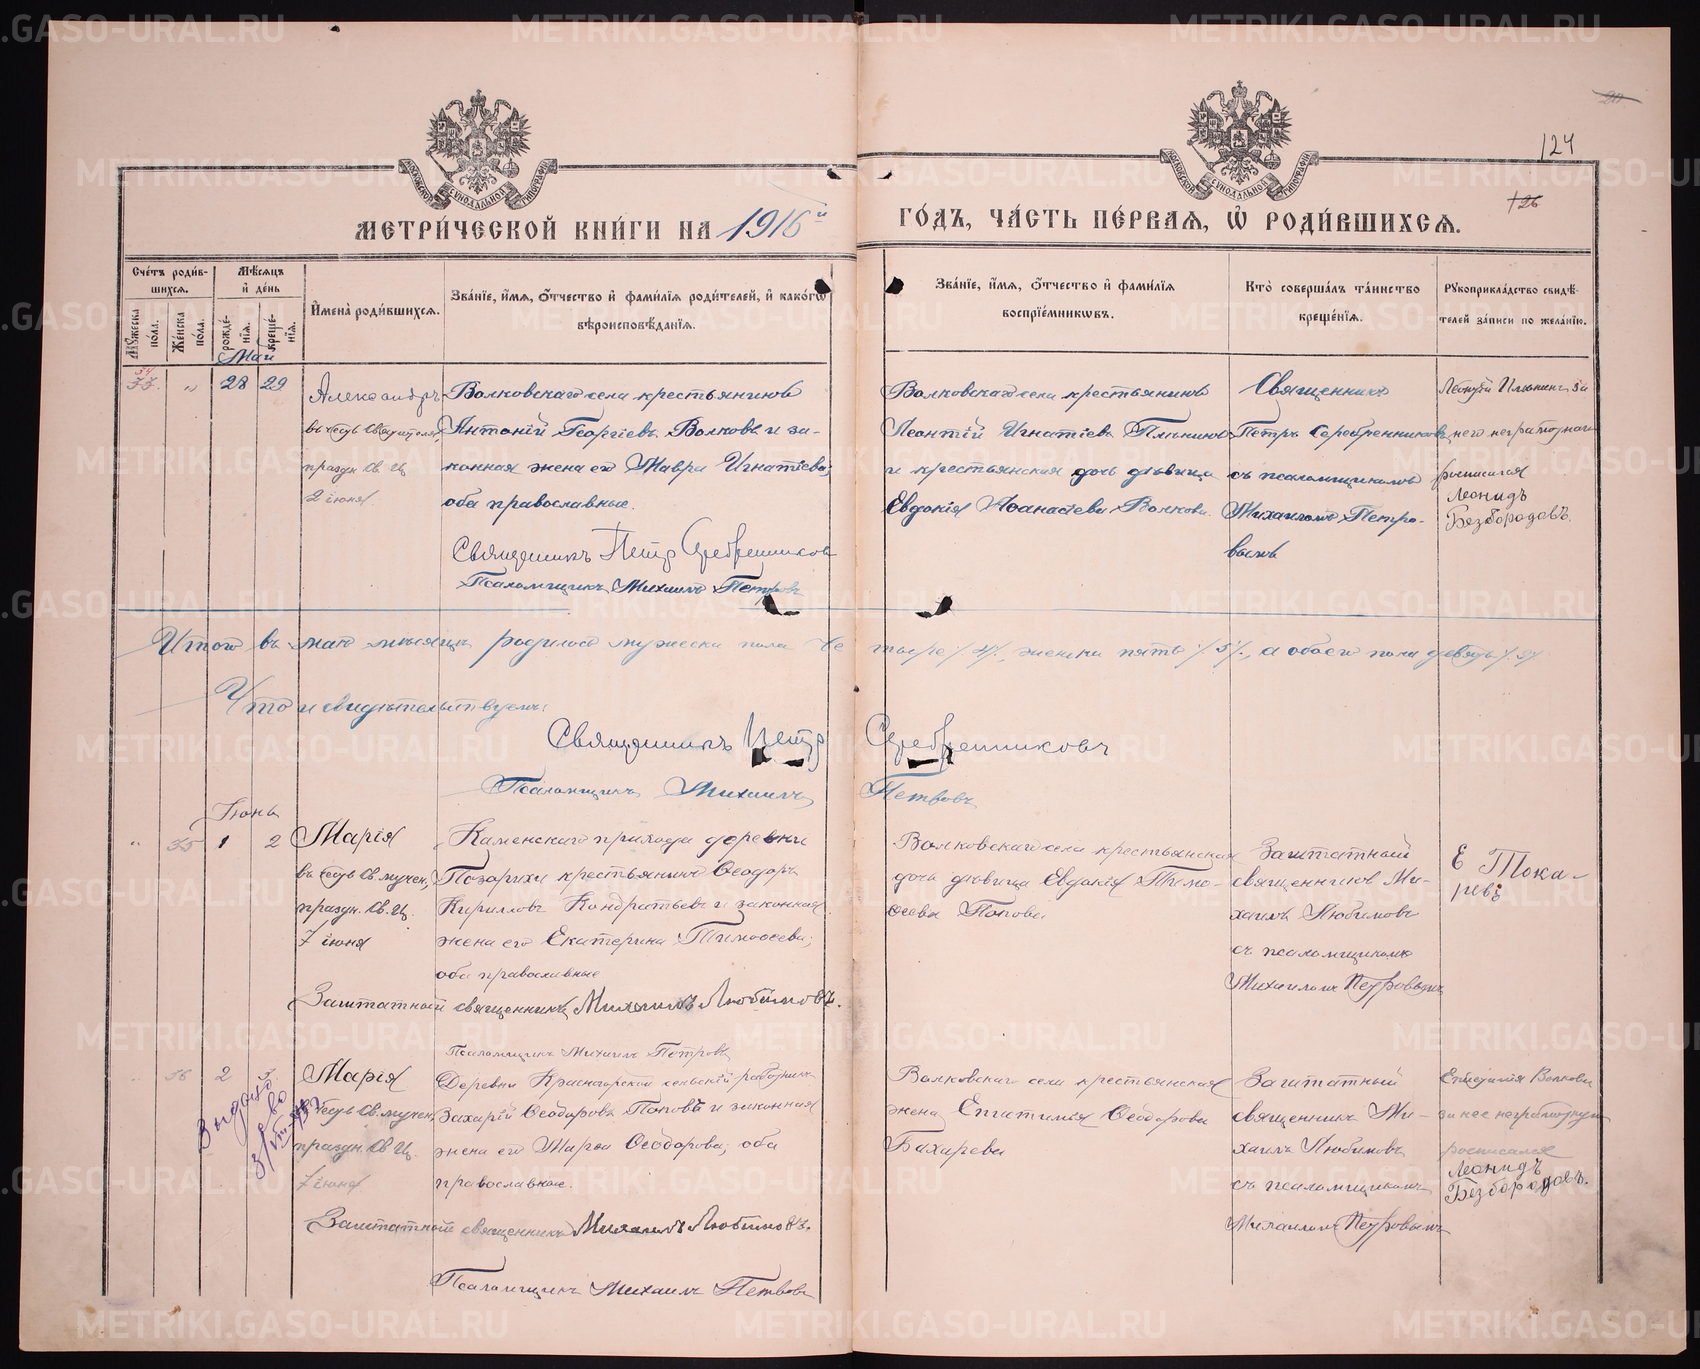 METRIKI.GASO-URAL.RU
124
126
20
МОСКОВСКОЙ СѴНОДАЛЬНОЙ ТИПОГРАФІИ
МЕТРИ́ЧЕСКОЙ КНИ́ГИ НА 1916й ГО́ДЪ, ЧА́СТЬ ПЕ́РВАЯ, Ѽ РОДИ́ВШИХСЯ.
Сче́тъ роди́вшихся.
Му́жеска по́ла.
Же́нска по́ла.
Мѣ́сяцъ и҆ де́нь
рожде́нія.
креще́нія.
И҆мена̀ роди́вшихся.
Зва́ніе, и҆́мя, ѻ҆́тчество и҆ фами́лія роди́телей, и҆ како́гѡ вѣроисповѣ́данія.
Зва́ніе, и҆́мя, ѻ҆́тчество и҆ фами́лія воспріе́мникѡвъ.
Кто̀ соверша́лъ та́инство креще́нія.
Рꙋкоприкла́дство свидѣ́телей за́писи по жела́нію.
Май
34
28 29
Александръ
праздн. Св. Ц.
2 іюня
Волковскаго села крестьянинъ
Антоній Георгіевъ Волковъ и за-
конная жена его Мавра Игнатіева,
оба православные.
Священникъ Петръ Серебренниковъ
Псаломщикъ Михаилъ Петровъ
Волковскаго села крестьянинъ
Леонтій Игнатіевъ
и крестьянская дочь дѣвица
Евдокія Аѳанасіева Волкова.
Священникъ
Петръ Серебренниковъ
съ псаломщикомъ
Михаиломъ Петро-
вымъ
него неграмотнаго
росписался
Леонидъ
Безбородовъ.
Итого въ маѣ мѣсяцѣ родилось мужеска пола четыре /4/, женска пять /5/, а обоего пола девять /9/.
Что и свидѣтельствуемъ:
Священникъ Петръ Серебренниковъ
Псаломщикъ Михаилъ Петровъ
Іюнь
35 1 2
Марія
въ честь Св. мучен.,
праздн. Св. Ц.
7 іюня
Каменскаго прихода деревни
Позарихи крестьянинъ Ѳеодоръ
Кирилловъ Кондратьевъ и законная
жена его Екатерина Тимоѳеева;
оба православные
Заштатный священникъ Михаилъ Любимовъ.
Псаломщикъ Михаилъ Петровъ
Волковскаго села крестьянская
дочь дѣвица Евдокія Тимо-
ѳеева Попова
Заштатный
священникъ Ми-
хаилъ Любимовъ
съ псаломщикомъ
Михаиломъ Петровымъ
Е Тока-
ревъ
36 2 3
Марія
честь Св. мучен.,
праздн. Св. Ц.
7 іюня
Выдано
Деревни Красногорской сельскій работникъ
Захарій Ѳеодоровъ Поповъ и законная
жена его Марѳа Ѳеодорова, оба
православные.
Заштатный священникъ Михаилъ Любимовъ.
Псаломщикъ Михаилъ Петровъ
Волковскаго села крестьянская
жена Епистимія Ѳеодорова
Бахарева
Заштатный
священникъ Ми-
хаилъ Любимовъ
съ псаломщикомъ
Михаиломъ Петровымъ
за нее неграмотную
росписался
Леонидъ
Безбородовъ.